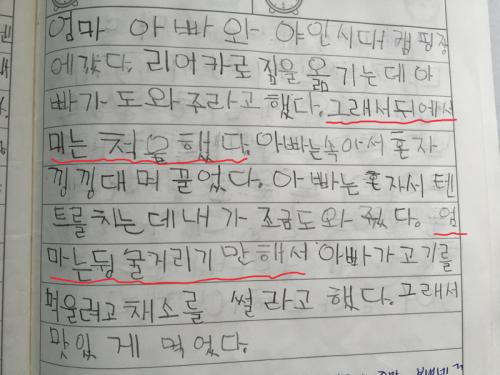 엄마 아빠와 야인시대 캠핑장
에갔다. 리어카로 짐을 옮기는데 아
빠가 도와주라고 했다. 그래서뒤에서
미는 척을 했다. 아빠는속아서 혼자
낑낑대며 끌었다. 아빠는 혼자서 텐
트를 치는데 내가 조금도와 줬다. 엄
마는뒹굴거리기 만해서 아빠가고기를
먹을려고 채소를 썰라고 했다. 그래서
맛있게 먹었다.